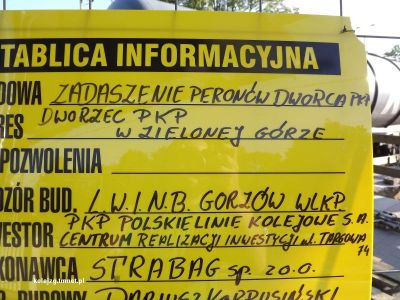 TABLICA INFORMACYJNA
DOWA ZADASZENIE PERONÓW DWORCA PKP
RES DWORZEC PKP
W ZIELONEJ GÓRZE
POZWOLENIA
DZÓR BUD. L.W.I.N.B. GORZÓW WLKP
WESTOR PKP POLSKIE LINIE KOLEJOWE S.A.
CENTRUM REALIZACJI INWESTYCJI ul. TARGOWA 74
KONAWCA STRABAG sp. z o.o.
BUDOWY DARIUSZ
kolejzg.inmet.pl